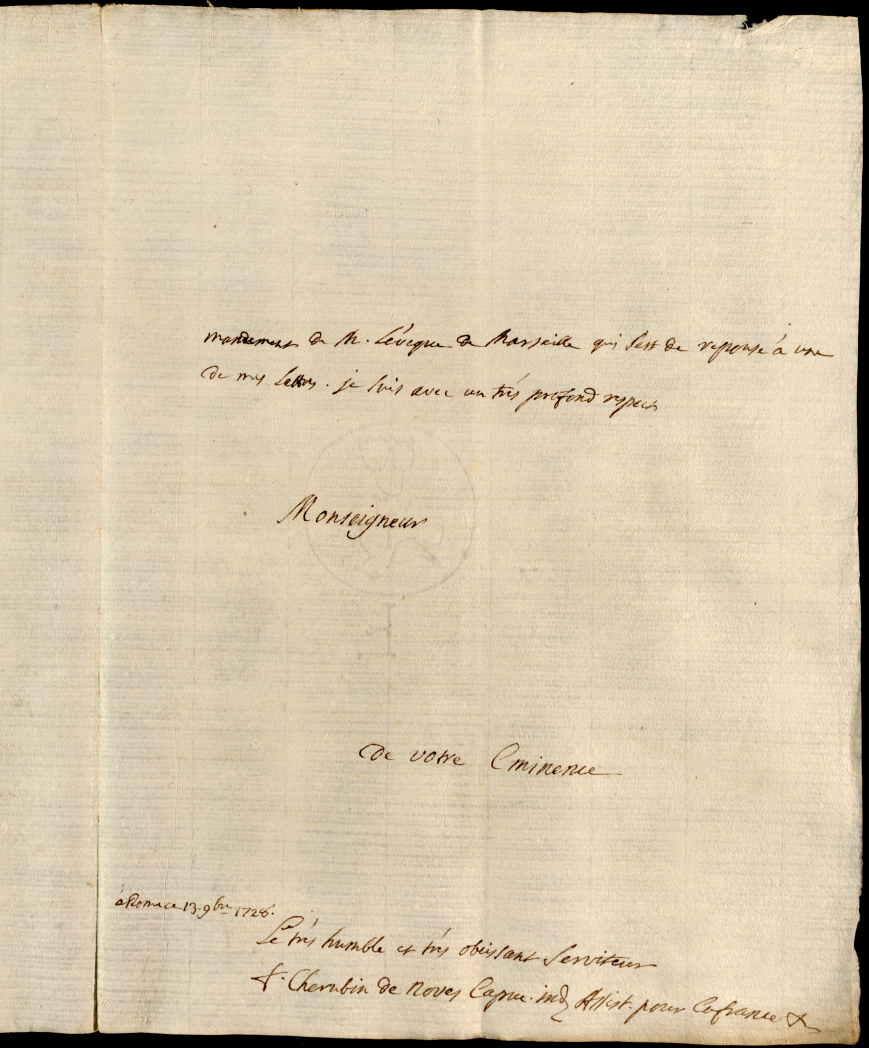 mandement de M. Lévêque de Marseille qui sert de reponse à une
de mes Lettres. je suis avec un trés profond respect
Monseigneur
De votre Eminence
à Rome ce 13. 9bre 1728.
Le trés humble et trés obeissant Serviteur
f. Cherubin de Noves Capuc. ind. Assist. pour la france